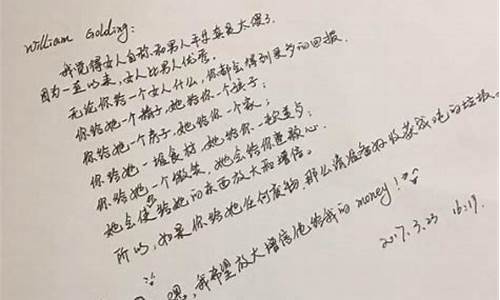 William Golding:
我觉得女人自称和男人平等真是太傻了.
因为一直以来,女人比男人优秀.
无论你给一个女人什么,你都会得到更多的回报
你给她一个精子,她给你一个孩子;
你给她一个房子,她给你一个家;
你给她一堆食物,她给你一顿美餐;
你给她一个微笑,她会给你整颗心.
她会使给她的东西放大和增倍.
所以,如果你给她任何废物,那么请准备好收获成吨的垃圾。
嗯,我希望放大增倍他给我的money!
2017.3.23 16:19